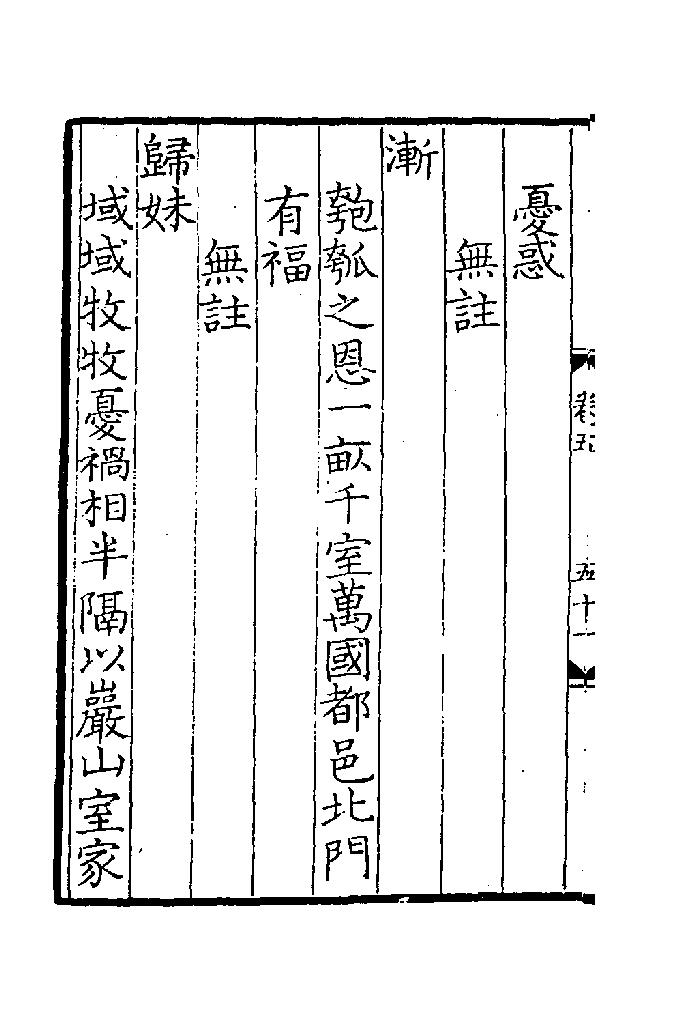 憂惑
無註
漸
匏瓠之恩一畝千室萬國都邑北門
有福
無註
歸妹
域域牧牧憂禍相半隔以巖山室家
卷五
五十一